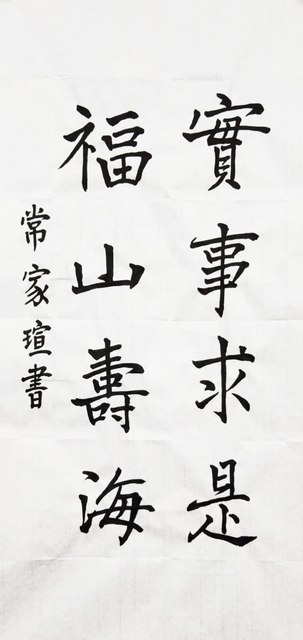 實事求是
福山壽海
常家瑄書